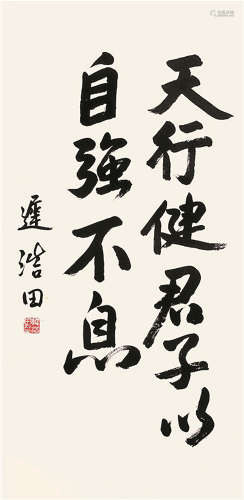 天行健君子以
自強不息
遲浩田